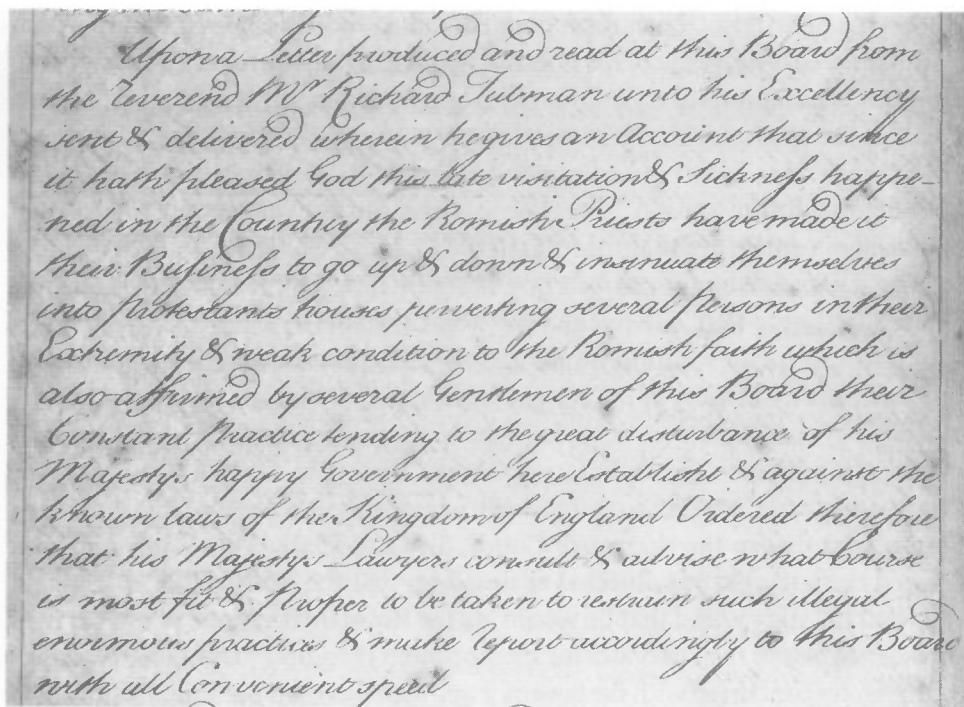 Upon a Letter produced and read at this Board from
the Reverend Mr Richard Tubman unto his Excellency
sent & delivered wherein he gives an Account that since
it hath pleased God this late visitation & Sickneſs happe-
ned in the Country the Romish Priests have made it
their Buſineſs to go up & down & insinuate themselves
into Protestants houses perverting several Persons in their
Extremity & weak condition to the Romish faith which is
also affirmed by several Gentlemen of this Board their
Constant Practice tending to the great disturbance of his
Majestys happy Government here Establisht & against the
known laws of the Kingdom of England Ordered therefore
that his Majestys Lawyers consult & advise what Course
is most fit & Proper to be taken to restrain such illegal
enormous practices & make Report accordingly to this Board
with all Convenient speed